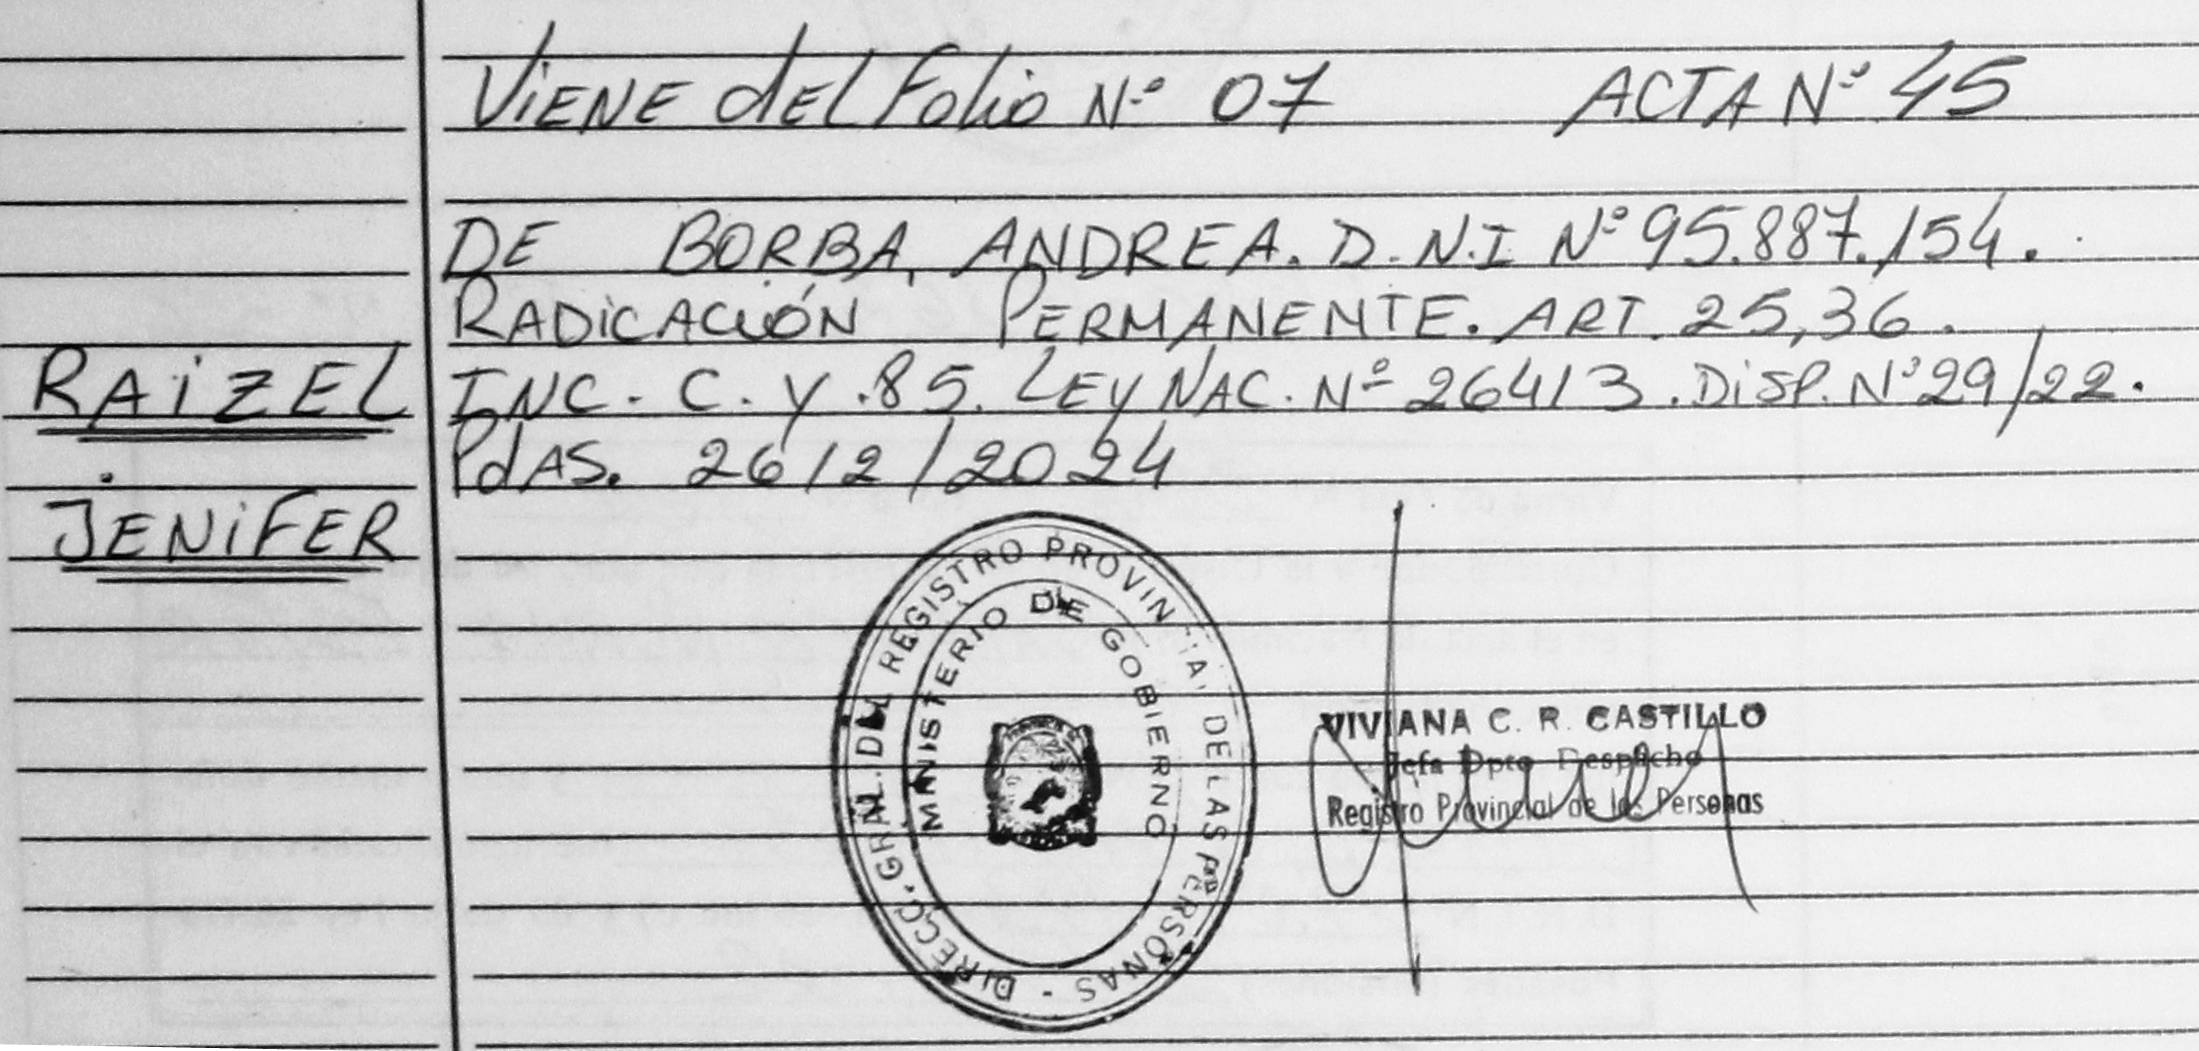 ViENE dEL Folio Nº 07 ACTA Nº 45
DE BORBA, ANDREA. D.N.I Nº 95.887.154.
RADiCACiÓN PERMANENTE. ART. 25,36.
RAiZEL
INC. C. Y .85. LEY NAC. Nº 26413. DiSP. Nº 29/22.
PdAS. 26/2/2024
JENiFER
DIRECC. GRAL. DEL REGISTRO PROVINCIAL DE LAS PERSONAS -
MINISTERIO DE GOBIERNO
VIVIANA C. R. CASTILLO
Jefa Dpto Despacho
Registro Provincial de las Personas